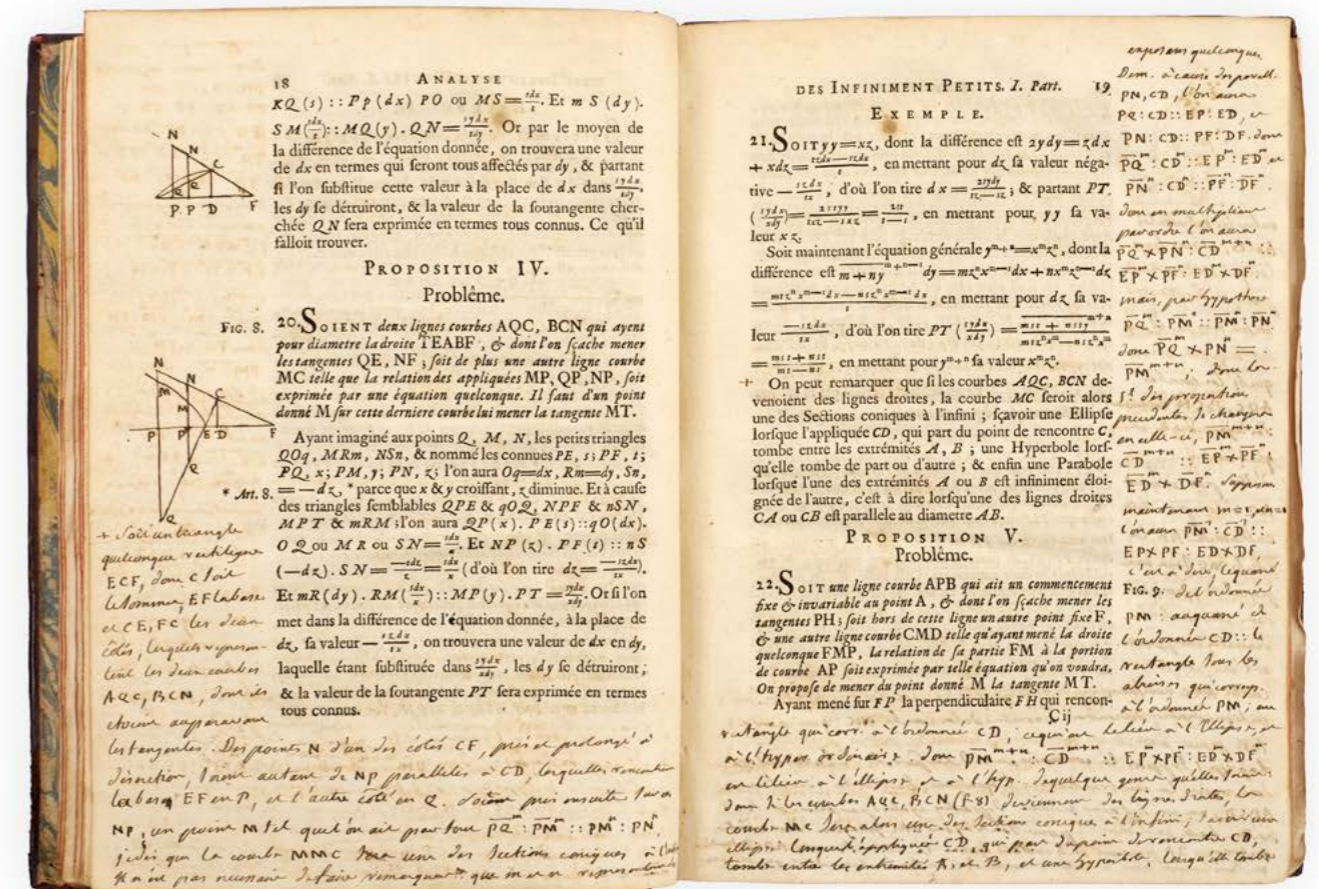 18 ANALYSE
KQ (s) :: Pp (dx) PO ou MS = sdx/s. Et m S (dy).
SM :: MQ (y). QN = Or par le moyen de
la différence de l'équation donnée, on trouvera une valeur
de dx en termes qui seront tous affectés par dy, & partant
si l'on substitue cette valeur à la place de dx dans
les dy se détruiront, & la valeur de la soutangente cher-
chée QN sera exprimée en termes tous connus. Ce qu'il
falloit trouver.
PROPOSITION IV.
Problême.
FIG. 8. 20. SOIENT deux lignes courbes AQC, BCN qui ayent
pour diametre la droite TEABF, & dont l'on sçache mener
les tangentes QE, NF ; soit de plus une autre ligne courbe
MC telle que la relation des appliquées MP, QP, NP, soit
exprimée par une équation quelconque. Il faut d'un point
donné M sur cette derniere courbe lui mener la tangente MT.
Ayant imaginé aux points Q, M, N, les petits triangles
QOq, MRm, NSn, & nommé les connues PE, s ; PF, t ;
PQ, x ; PM, y ; PN, z ; l'on aura Oq=dx, Rm=dy, Sn,
* Art. 8. = — dz, * parce que x & y croissant, z diminue. Et à cause
des triangles semblables QPE & qOQ, NPF & nSN,
MPT & mRM ; l'on aura QP (x). PE (s) :: qO (dx).
OQ ou MR ou SN = sdx/x. Et NP (z). PF (t) :: nS
(—dz). SN = —tdz/z = sdx/x (d'où l'on tire dz = —szdx/tx).
Et mR (dy). RM (sdx/x) :: MP (y). PT = sydx/xdy. Or si l'on
met dans la différence de l'équation donnée, à la place de
dz, sa valeur — szdx/tx, on trouvera une valeur de dx en dy,
laquelle étant substituée dans sydx/xdy, les dy se détruiront ;
& la valeur de la soutangente PT sera exprimée en termes
tous connus.
N
C
P P D F
N N
M C
M
P P E D F
Q
Q
+ Soit un triangle
quelconque rectiligne
ECF, dont C soit
le sommet, EF la base
et CE, FC les deux
côtés, lesquels represen-
tent les deux courbes
AQC, BCN, dont
les tangentes. Des points N d'un des côtés CF, pris et prolongé à
discretion, soient autant de NP paralleles à CD, lesquelles rencontrent
la base EF en P, et l'autre côté en Q. soient pris ensuite sur
NP, un point M tel que l'on ait par tout PQ^m : PM^m :: PM^n : PN^n,
je dis que la courbe MMC sera une des sections coniques à
Il n'est pas necessaire de faire remarquer que m et n
DES INFINIMENT PETITS. I. Part. 19
EXEMPLE.
21. SOIT yy=xz, dont la différence est 2ydy=zdx
+ xdz = tzdx—szdx/t, en mettant pour dz sa valeur néga-
tive — szdx/tx, d'où l'on tire dx = 2tydy/tz—sz ; & partant PT
(sydx/xdy) = 2styy/txz—sxz = 2st/t—s, en mettant pour yy sa va-
leur xz.
Soit maintenant l'équation générale y^m+n=x^m z^n, dont la
différence est m+ny^m+n—1 dy=mz^n x^m—1 dx+nx^m z^n—1 dz
= mtz^n x^m—1 dx—nsz^n x^m—1 dx/t, en mettant pour dz sa va-
leur —szdx/tx, d'où l'on tire PT (sydx/xdy) =
= mst+nst/mt—ns, en mettant pour y^m+n sa valeur x^m z^n.
+ On peut remarquer que si les courbes AQC, BCN de-
venoient des lignes droites, la courbe MC seroit alors
une des Sections coniques à l'infini ; sçavoir une Ellipse
lorsque l'appliquée CD, qui part du point de rencontre C,
tombe entre les extrémités A, B ; une Hyperbole lors-
qu'elle tombe de part ou d'autre ; & enfin une Parabole
lorsque l'une des extrémités A ou B est infiniment éloi-
gnée de l'autre, c'est à dire lorsqu'une des lignes droites
CA ou CB est parallele au diametre AB.
PROPOSITION V.
Problême.
22. SOIT une ligne courbe APB qui ait un commencement
fixe & invariable au point A, & dont l'on sçache mener les
tangentes PH ; soit hors de cette ligne un autre point fixe F,
& une autre ligne courbe CMD telle qu'ayant mené la droite
quelconque FMP, la relation de sa partie FM à la portion
de courbe AP soit exprimée par telle équation qu'on voudra.
On propose de mener du point donné M la tangente MT.
Ayant mené sur FP la perpendiculaire FH qui rencon-
Cij
exposans quelconques
Dem. à cause des parall.
PN, CD, l'on aura
PQ : CD :: EP : ED, et
PN : CD :: PF : DF. donc
PQ^m : CD^m :: EP^m : ED^m et
PN^n : CD^n :: PF^n : DF^n.
donc en multipliant
par ordre l'on aura
PQ^m × PN^n : CD^m+n ::
EP^m × PF^n : ED^m × DF^n.
mais, par hypothese
PQ^m : PM^m :: PM^n : PN^n
donc PQ^m × PN^n =
PM^m+n ; donc
des proportions
precedentes se changera
en celle-ci, PM^m+n :
CD^m+n :: EP^m × PF^n :
ED^m × DF^n. Supposons
maintenant m=1, et n=1
l'on aura PM² : CD² ::
EP × PF : ED × DF,
c'est à dire, le quarré
FIG. 9. de l'ordonnée
PM au quarré de
l'ordonnée CD :: le
rectangle sous les
abcisses qui corresp.
à l'ordonnée PM ; au
rectangle qui corr. à l'ordonnée CD, ce qui a lieu à l'Ellipse, et
à l'hyper ordinaire. donc PM^m+n : CD^m+n :: EP^m × PF^n : ED^m × DF^n
a lieu à l'ellipse et à l'hyp. de quelque genre qu'elles soient.
donc si les courbes AQC, BCN (f 8) deviennent des lignes droites, la
courbe MC sera alors une des sections coniques à l'infini ; sçavoir une
ellipse lorsque l'appliquée CD, qui part du point de rencontre CD,
tombe entre les extremités A, et B, et une hyperbole, lorsqu'elle tombe